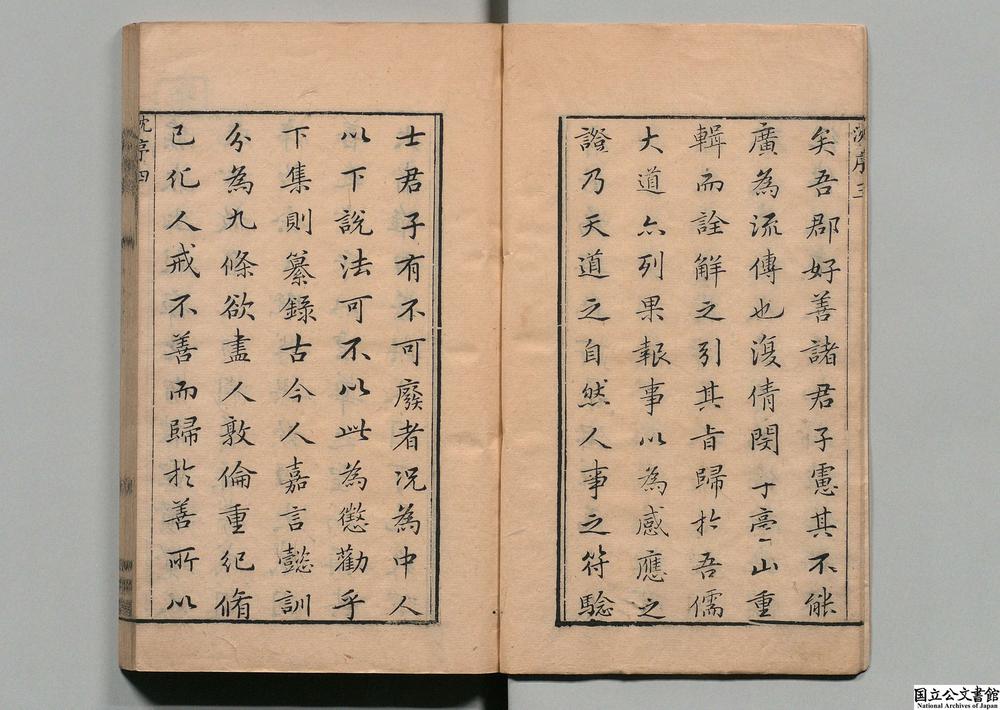 沈序三
矣吾郡好善諸君子慮其不能
廣為流傳也復倩閔子亭山重
輯而詮解之引其旨歸於吾儒
大道亦列果報事以為感應之
證乃天道之自然人事之符驗
士君子有不可廢者况為中人
以下說法可不以此為懲勸乎
下集則纂錄古今人嘉言懿訓
分為九條欲盡人敦倫重紀脩
已化人戒不善而歸於善所以
沈序四
国立公文書館
National Archives of Japan